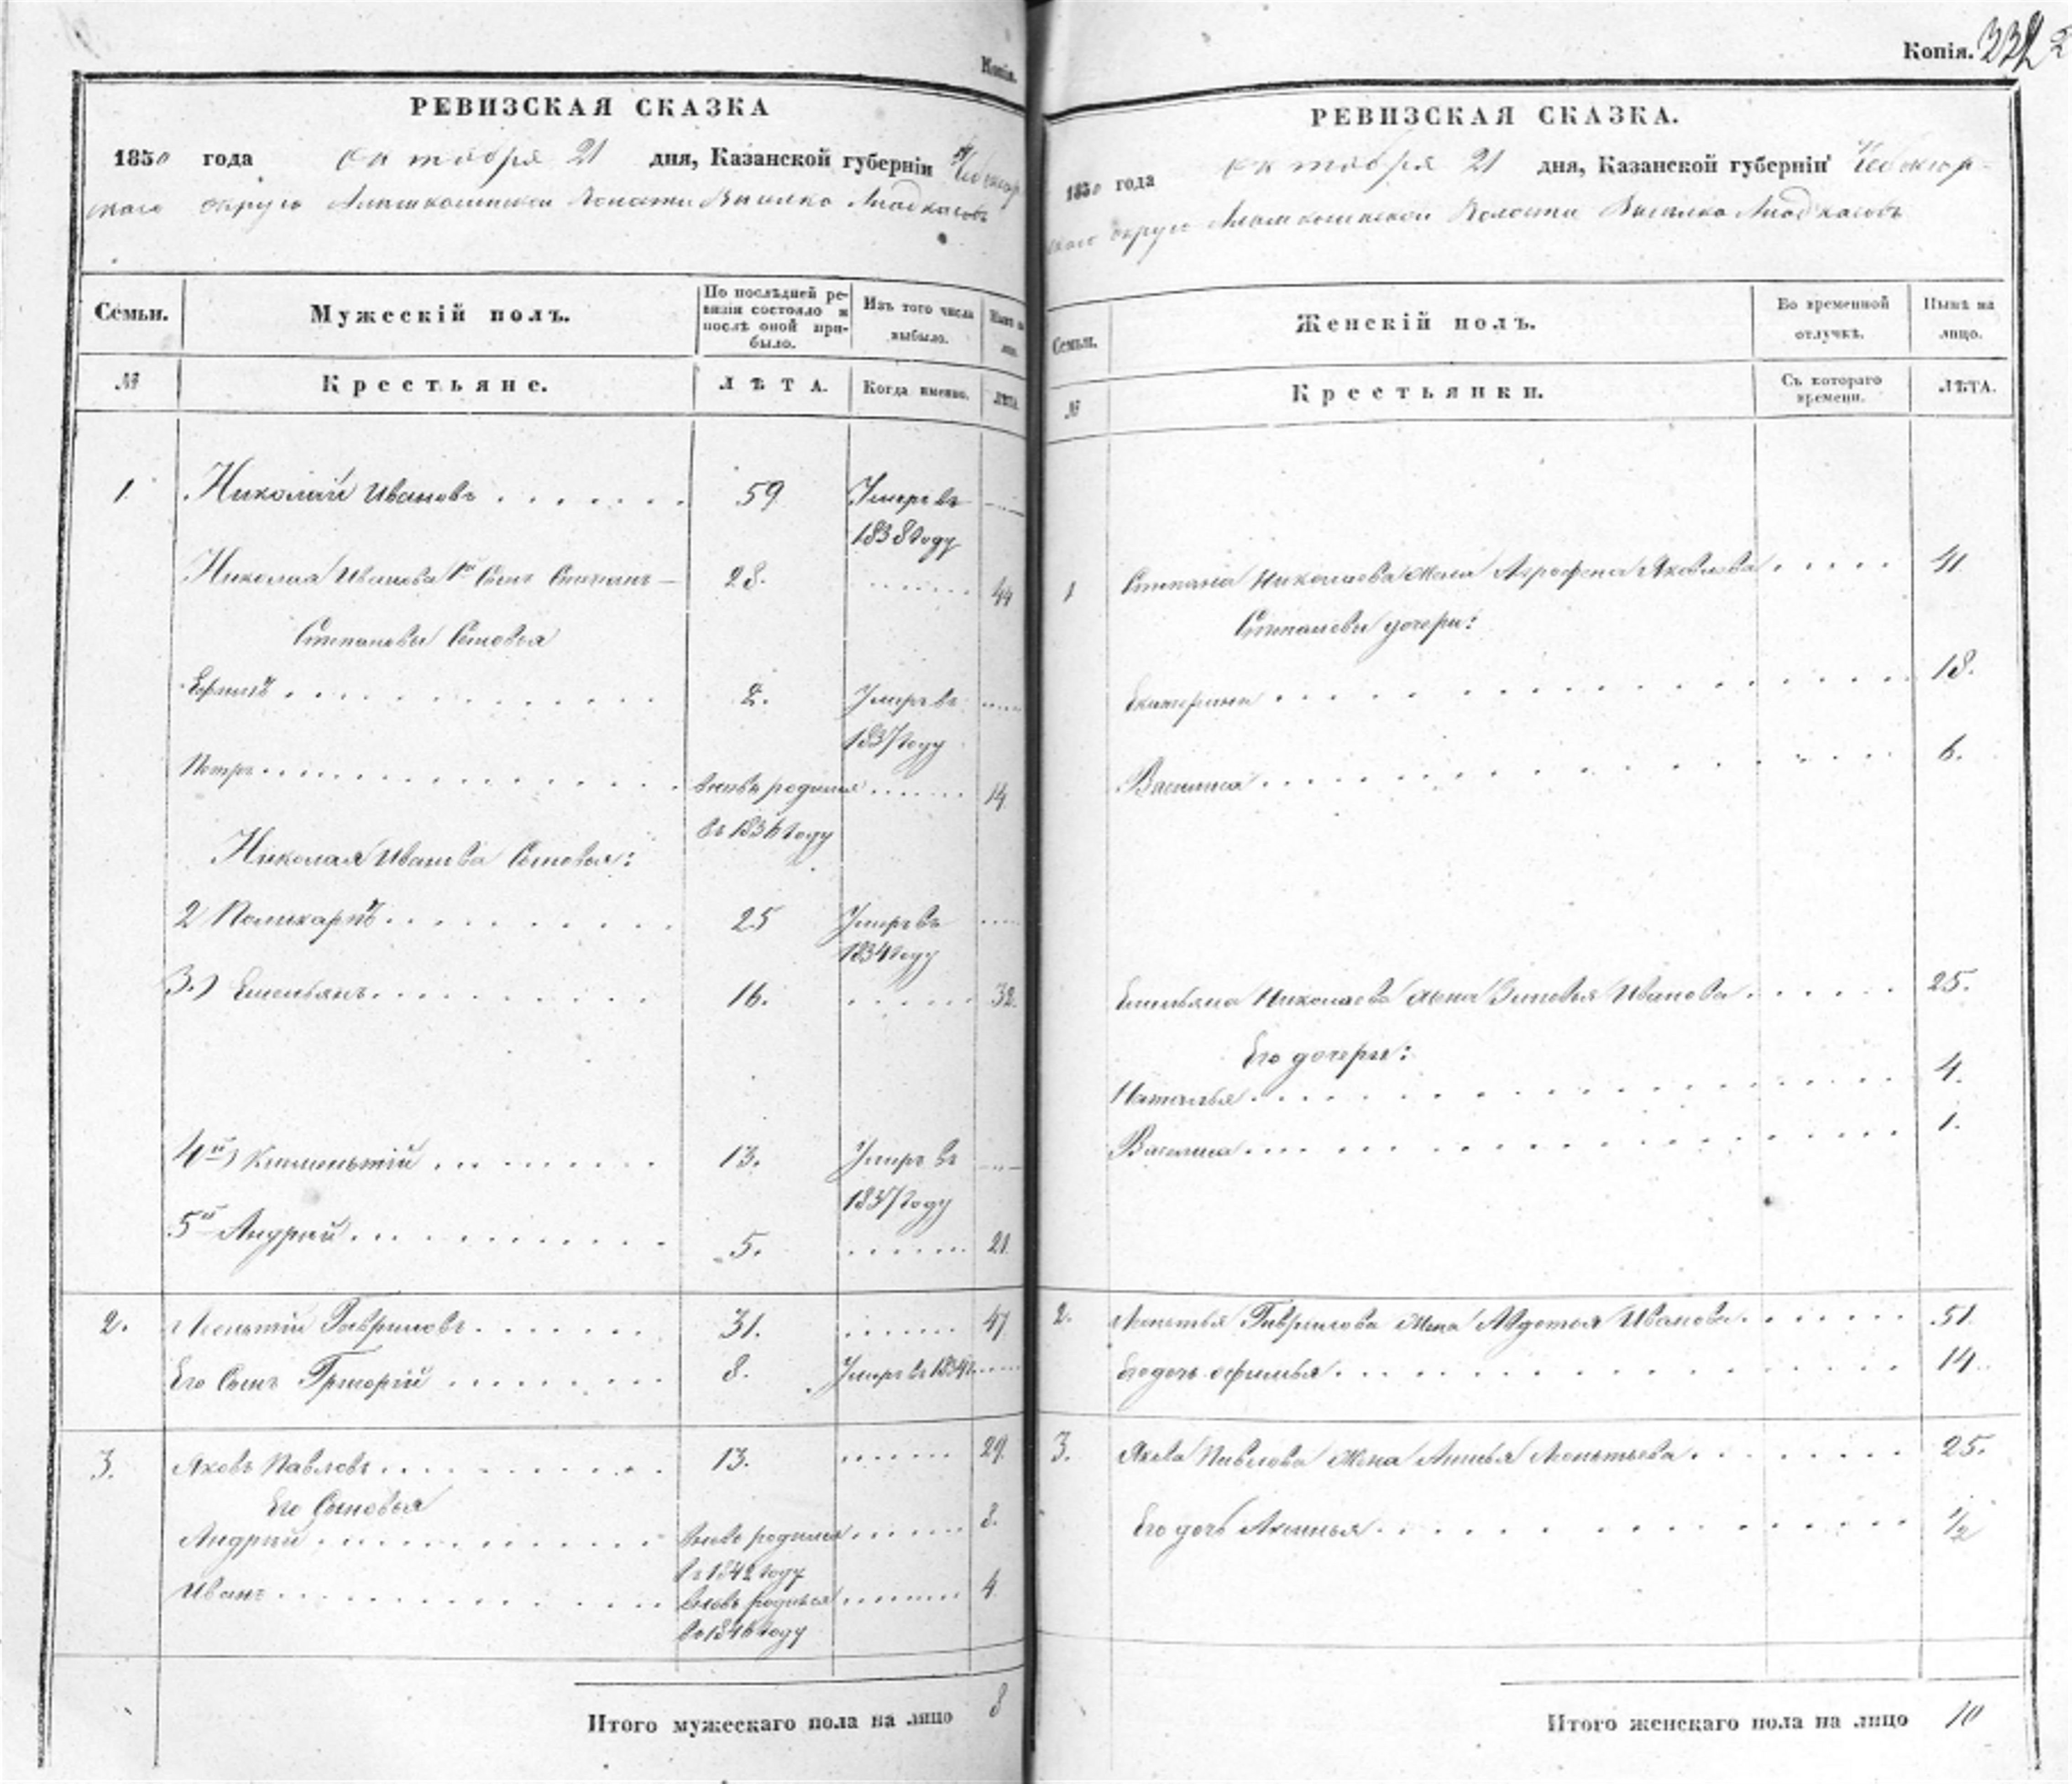 Копія.
РЕВИЗСКАЯ СКАЗКА
1850 года октября 21 дня, Казанской губерніи Чебоксар
скаго округа Алымкасинской Волости Выселка
Семьи.
Мужескій полъ.
По послѣдней ре-
визіи состояло и
послѣ оной при-
было.
Изъ того числа
выбыло.
Нынѣ на
лицо.
№
Крестьяне.
ЛѢТА.
Когда именно.
ЛѢТА.
1. Николай Ивановъ . . . . . . 59 Умеръ въ
1838 году
Николая Иванова 1й Сынъ Степанъ 28. . . . . . . 44
Степановы Сыновья
Ефимъ . . . . . . . . . 2. Умеръ въ
1837 году
Петръ . . . . . . . . . вновь родился . . . . . . 14
въ 1836 году
Николая Иванова Сыновья:
2 Поликарпъ . . . . . . . . 25 Умеръ въ
1834 году
3.) Емельянъ . . . . . . . . 16. . . . . . . 32.
4й) Климентій . . . . . . . 13. Умеръ въ
1837 году
5й Андрей . . . . . . . . . 5. . . . . . . 21.
2. Леонтій Гавриловъ . . . . . . 31. . . . . . . 47
Его Сынъ Григорій . . . . . . 8. Умеръ въ 1834 г.
3. Яковъ Павловъ . . . . . . . 13. . . . . . . 29.
Его Сыновья
Андрей . . . . . . . . . вновь родился . . . . . . 8.
въ 1842 году
Иванъ . . . . . . . . . вновь родился . . . . . . 4.
въ 1846 году
Итого мужескаго пола на лицо 8
Копія.
РЕВИЗСКАЯ СКАЗКА.
1850 года октября 21 дня, Казанской губерніи Чебоксар-
скаго округа Алымкасинской Волости Выселка
Семьи.
Женскій полъ.
Во временной
отлучкѣ.
Нынѣ на
лицо.
№
Крестьянки.
Съ котораго
времени.
ЛѢТА.
1 Степана Николаева Жена Агрофена Яковлева . . . . . 41.
Степановы дочери:
Екатерина . . . . . . . . . 18.
Василиса . . . . . . . . . 6.
Емельяна Николаева жена Зиновья Иванова . . . . . 25.
Его дочери:
Наталья . . . . . . . . . 4.
Василиса . . . . . . . . . 1.
2. Леонтья Гаврилова Жена Авдотья Иванова . . . . . 51.
Его дочь Офимья . . . . . . . . . 14.
3. Якова Павлова Жена Анисья Леонтьева . . . . . . 25.
Его дочь Аксинья . . . . . . . . . 1/2
Итого женскаго пола на лицо 10